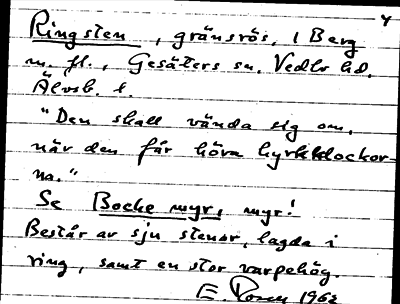 4
Ringsten, gränsrös, i Berg
m. fl., Gesäters sn. Vedbo hd.
Älvsb. l.
"Den skall vända sig om,
när den får höra kyrkklockor-
na."
Se Bocke myr, myr!
Består av sju stenar, lagda i
ring, samt en stor varpehög.
E. 1962